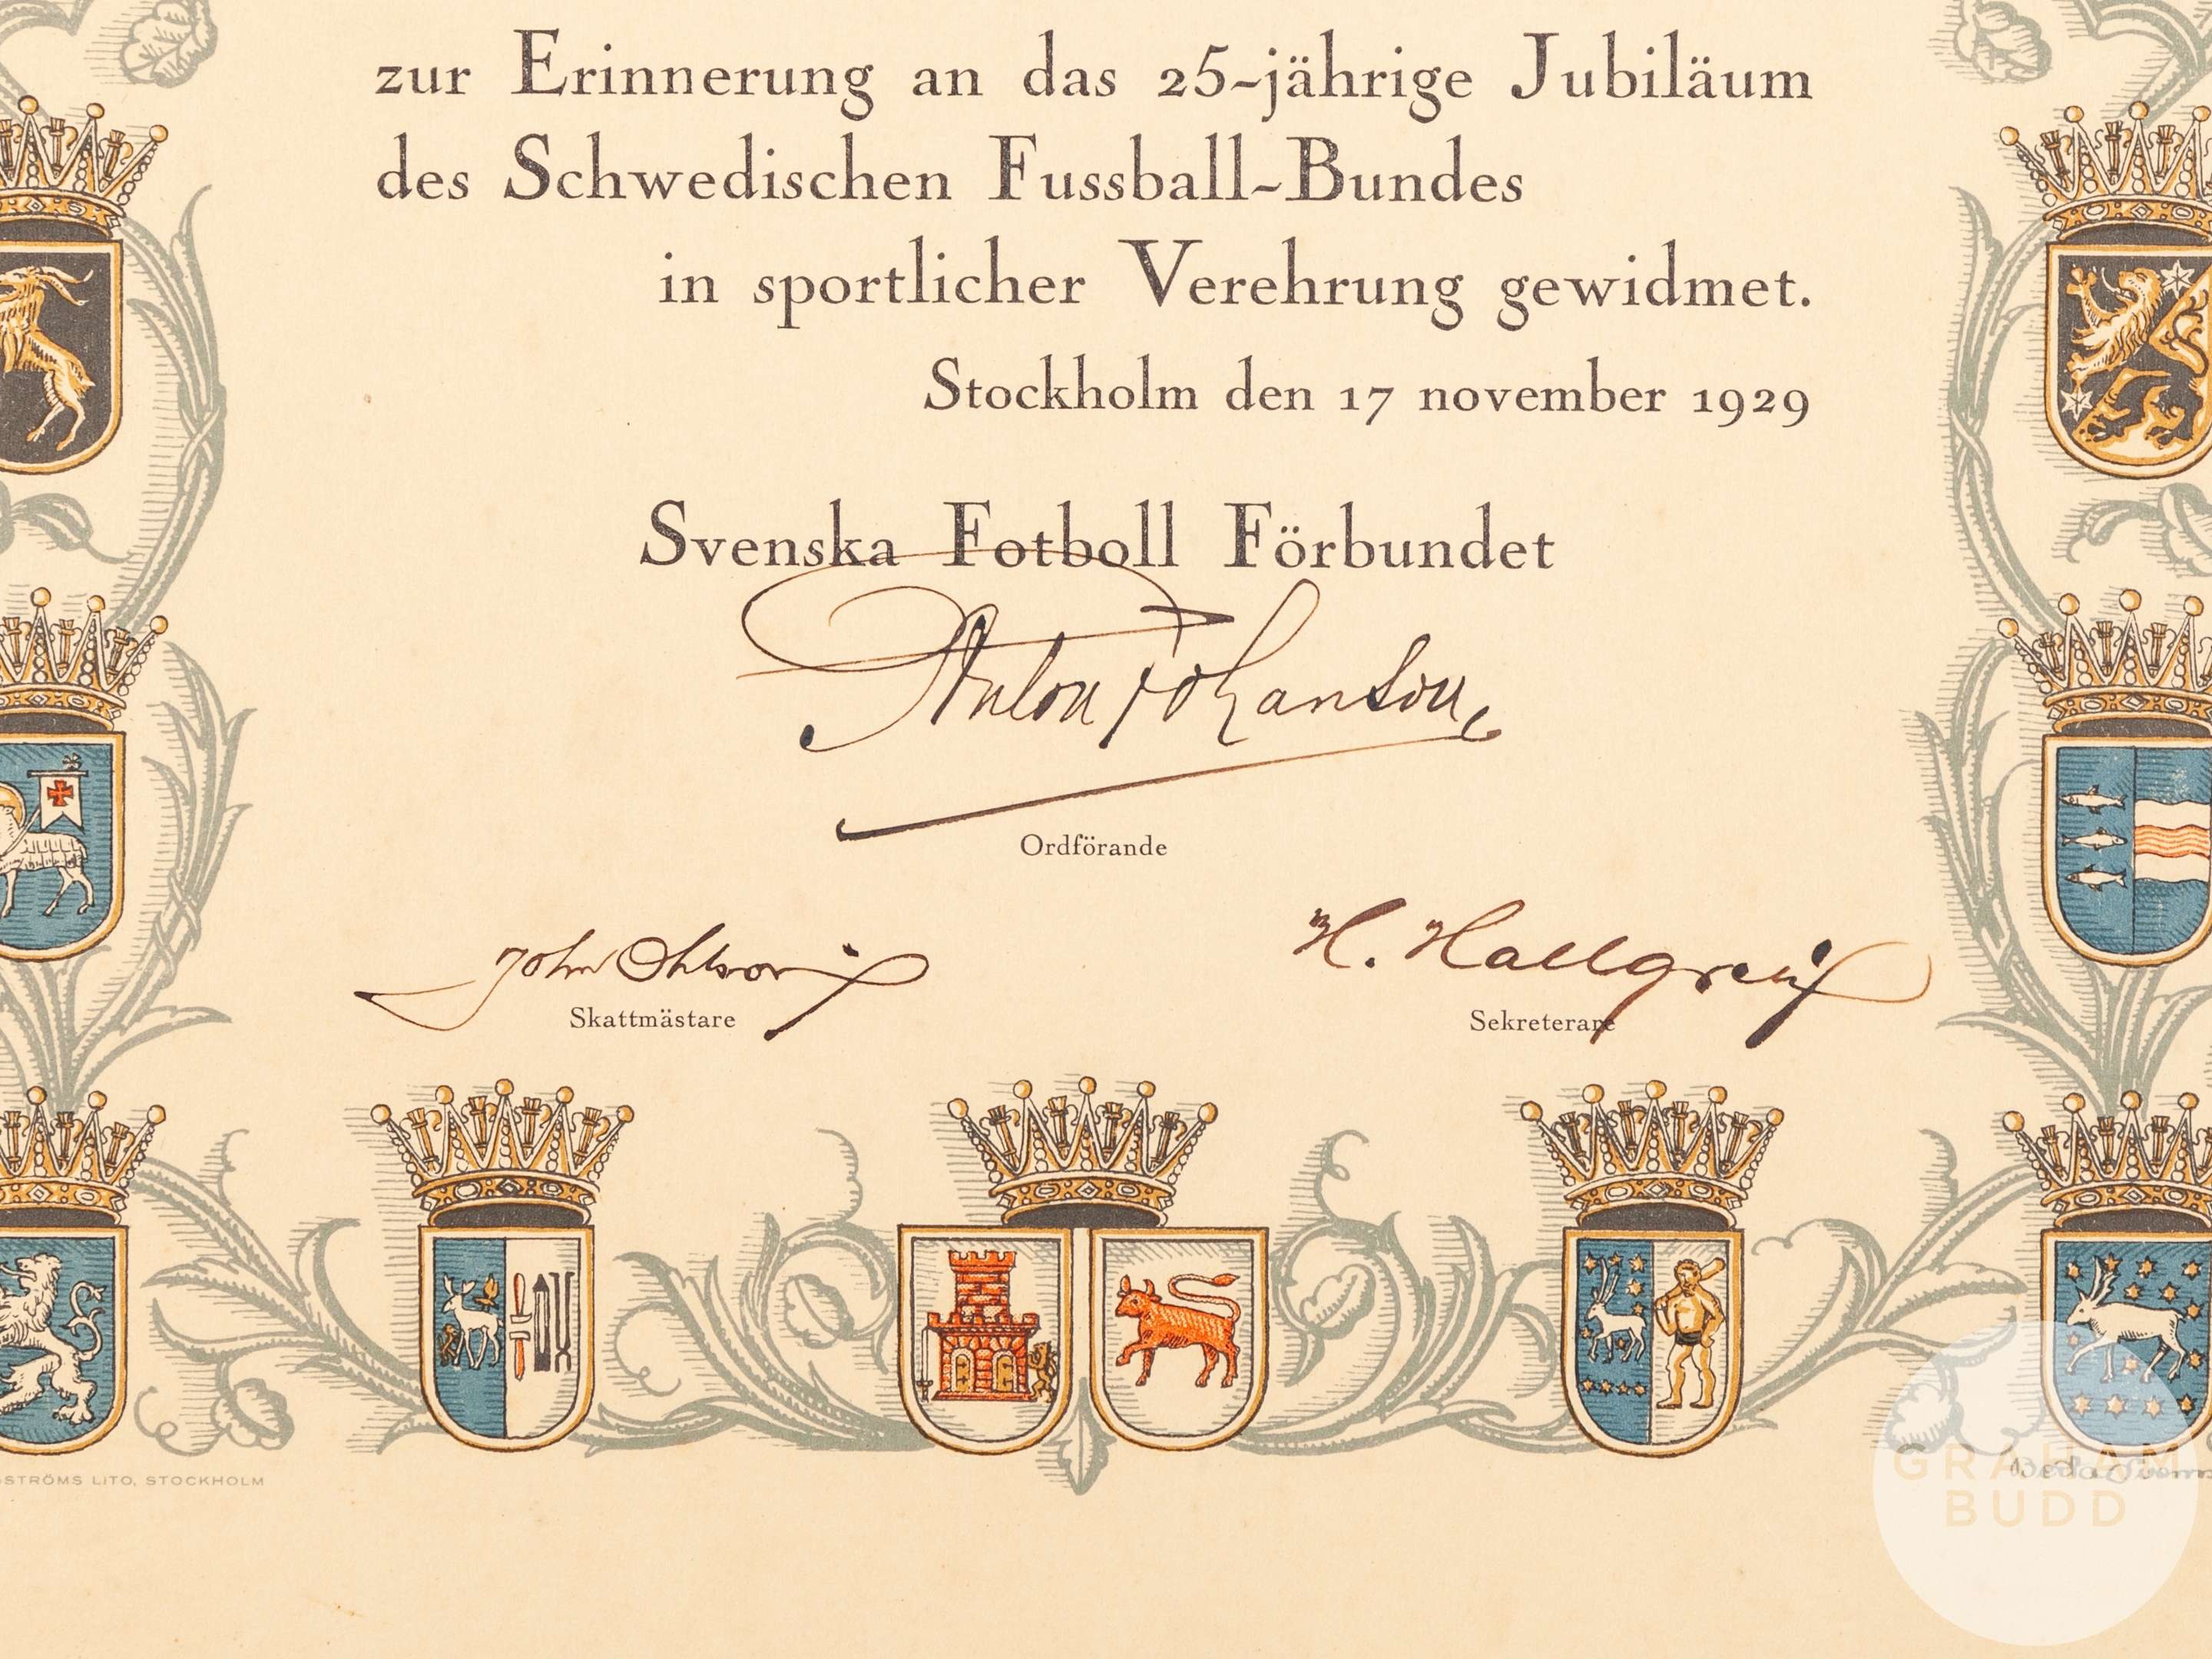 zur Erinnerung an das 25-jährige Jubiläum
des Schwedischen Fussball-Bundes
in sportlicher Verehrung gewidmet.
Stockholm den 17 november 1929
Svenska Fotboll Förbundet
Anton Johanson
Ordförande
John Ohlson
Skattmästare
H. Hallgren
Sekreterare
STRÖMS LITO, STOCKHOLM
GRAHAM
BUDD